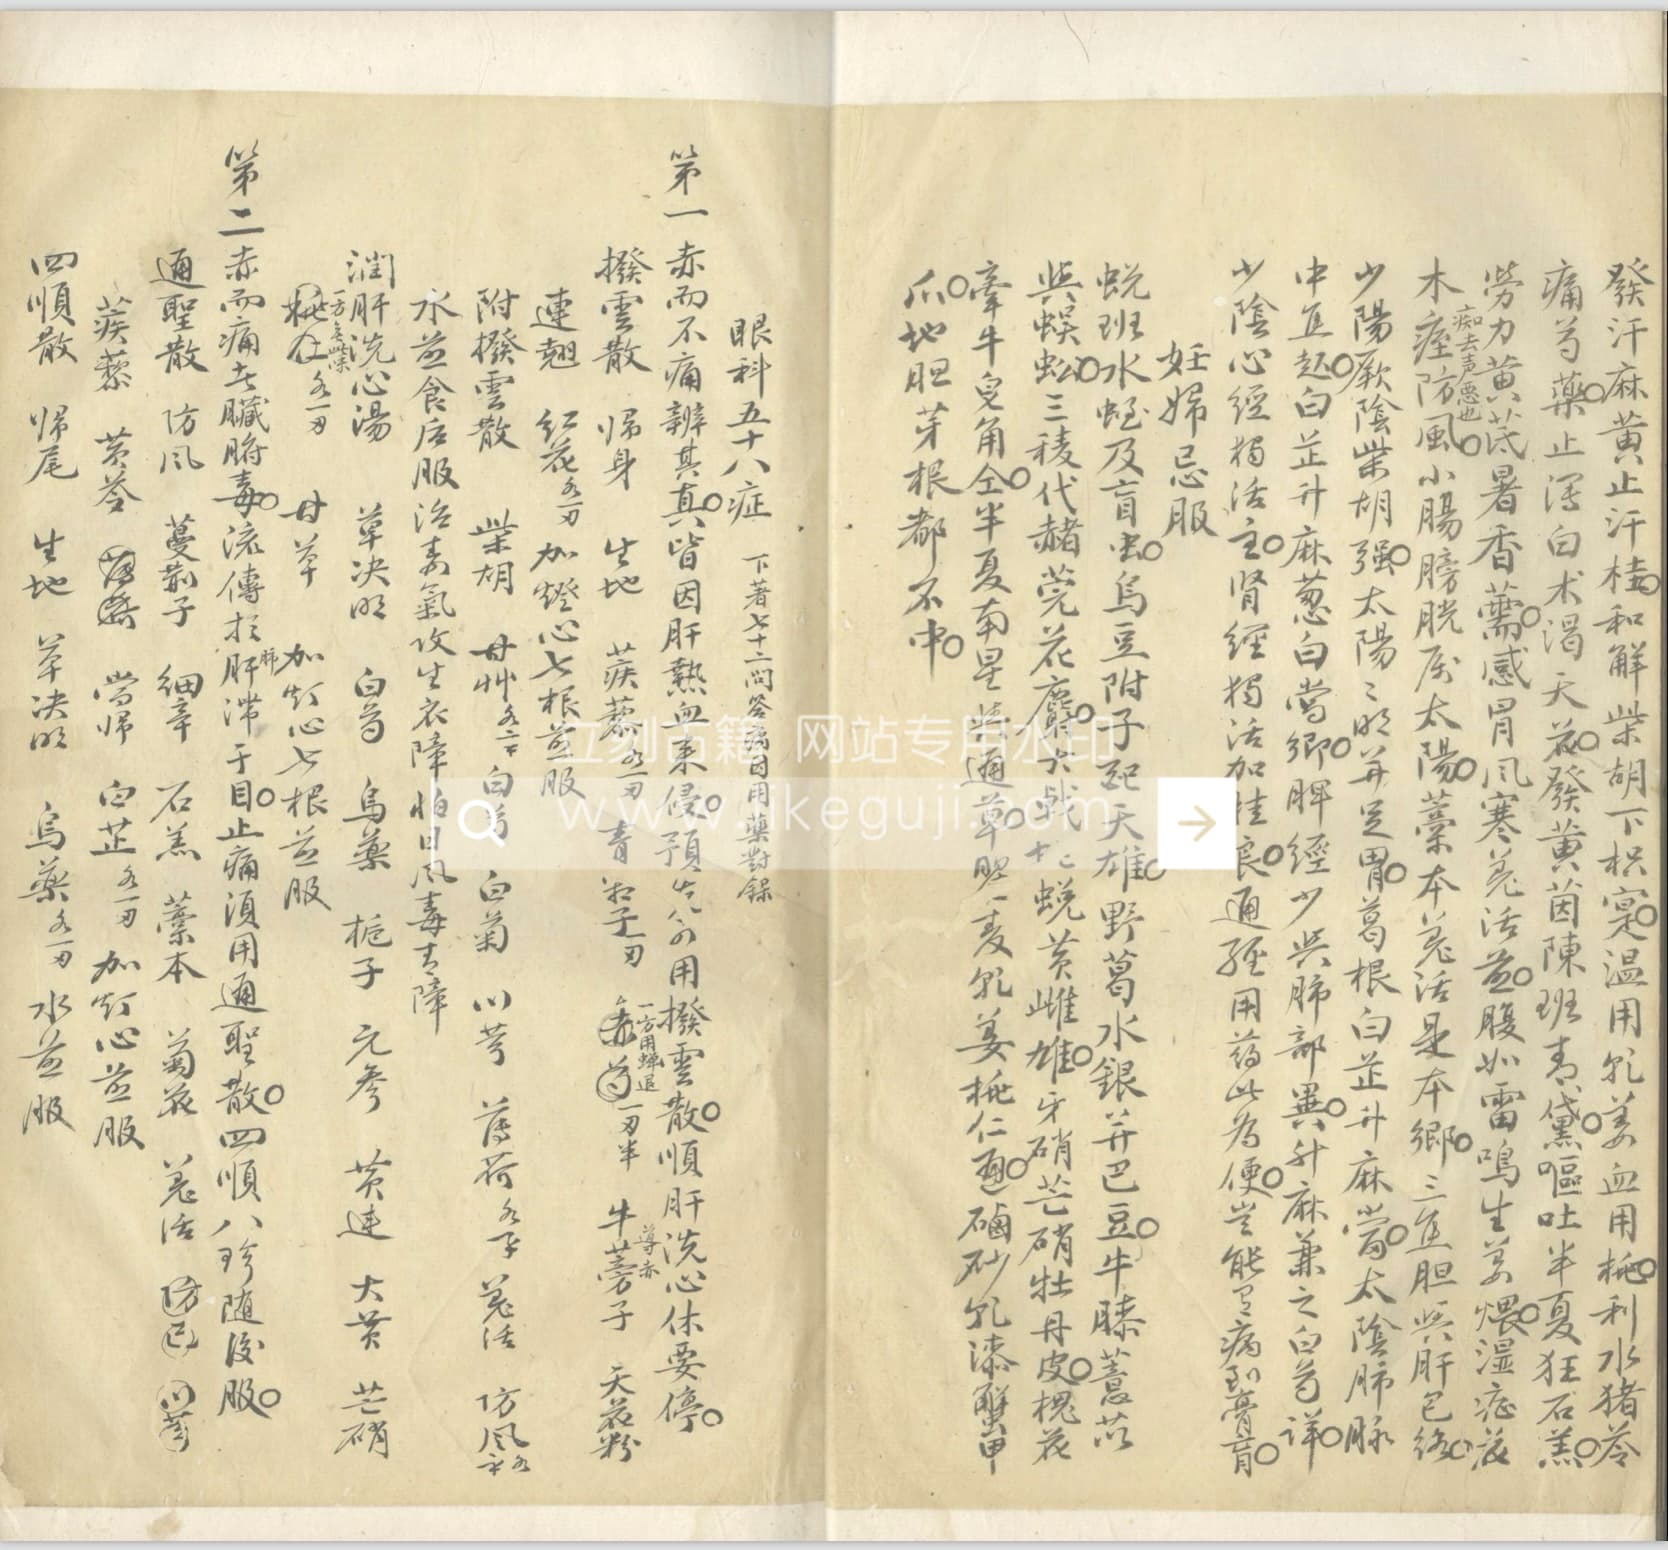 發汗麻黄止汗桂和解柴胡下枳寔温用乹姜血用桃利水猪苓
痛芍藥止瀉白术渴天花發黄茵陳班青黛嘔吐半夏狂石羔
勞力黄芪暑香薷感冒風寒羌活益腹如雷鳴生姜煨湿症蒼
痴去声恶也
木痙防風小腸膀胱屬太陽藁本羌活是本鄉三焦胆與肝包絡
少陽厥陰柴胡强太陽〻明并足胃葛根白芷升麻當太陰肺脉
中焦起白芷升麻葱白當鄉脾經少與肺部異升麻兼之白芍詳
少陰心經獨活主腎經獨活加桂良通經用药此為便豈能有病到膏肓
妊婦忌服
蜕班水蛭及盲虫烏豆附子配天雄野葛水銀并巴豆牛膝薏苡
與蜈蚣三稜代赭莞花麝大戟 蜕黄雌雄牙硝芒硝牡丹皮槐花
牽牛皂角仝半夏南星與通草 姜桃仁通硇砂乹漆蟹甲
爪地胆芽根都不中
眼科五十八症 下著七十二問答病因用藥對錄
第一赤而不痛辨其真真皆因肝熱血來侵預先 用撥雲散順肝洗心休要停
撥雲散 归身 生地 蒺藜各一刃 青 子刃 赤芍一刃半 牛蒡子 天花粉
一方用蟬退
導赤
連翹 红花各一刃 加燈心七根煎服
附撥雲散 柴胡 甘艸 白芍 白菊 川芎 薄荷 羌活 防風
水煎食后服治毒氣攻生衣障怕日風毒去障
潤肝洗心湯 草决明 白芍 烏藥 栀子 元参 黄連 大黄 芒硝
一方去柴
桃仁各一刃 甘草 加灯心七根煎服
第二赤而痛去臟腑毒流傳扵肝滯于目止痛須用通聖散四順八珍随後服
肺
通聖散 防风 蔓荊子 細辛 石羔 藁本 菊花 羌活 防己 川芎
蒺藜 黄芩 當归 白芷各一刃 加灯心煎服
四順散 归尾 生地 草决明 烏藥各一刃 水煎服
立刻古籍 网站专用水印
www.likeguji.com